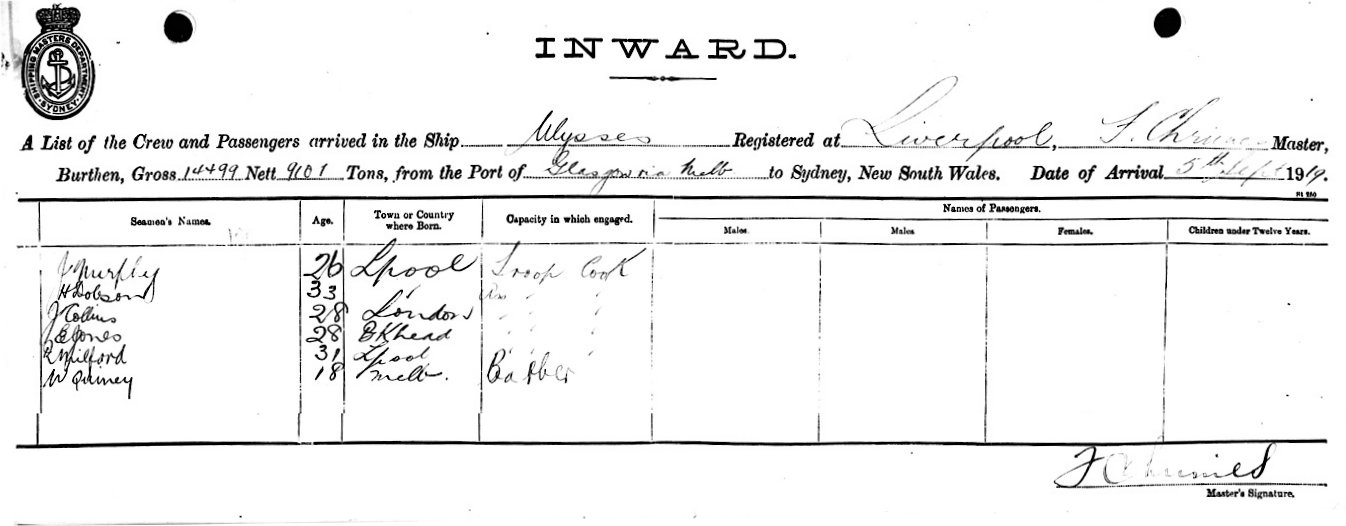 SHIPPING MASTERS DEPARTMENT. SYDNEY
INWARD.
A List of the Crew and Passengers arrived in the Ship Ulysses Registered at Liverpool, Master,
Burthen, Gross 14499 Nett 9101 Tons, from the Port of Glasgow via Melb to Sydney, New South Wales. Date of Arrival 5th Sept 1919.
Names of Passengers.
Seamen's Names. Age. Town or Country where Born. Capacity in which engaged. Males. Males. Females. Children under Twelve Years.
J Murphy 26 Lpool Troop Cook
H Dobson 33 " As " "
J Collins 28 London " " "
J E Jones 28 BKhead " " "
Milford 31 Lpool " " "
W Quiney 18 Melb. Barber
Master's Signature.